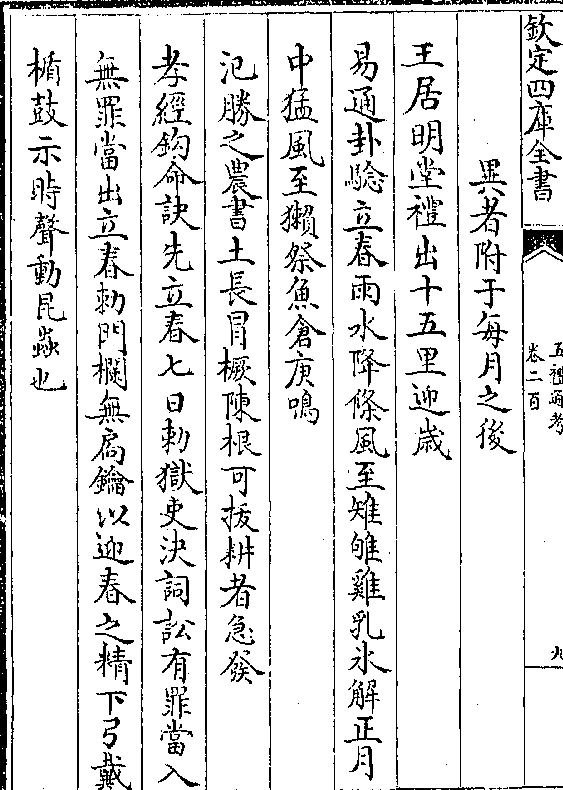 欽定四庫全書
五禮通考
卷二百
九
異者附于每月之後
王居明堂禮出十五里迎歲
易通卦驗立春雨水降條風至雉雊雞乳氷解正月
中猛風至獺祭魚倉庚鳴
氾勝之農書土長冒橛陳根可拔耕者急發
孝經鈎命訣先立春七日勅獄吏決詞訟有罪當入
無罪當出立春勅門欄無扃鑰以迎春之精下弓戴
楯鼓示時聲動昆蟲也